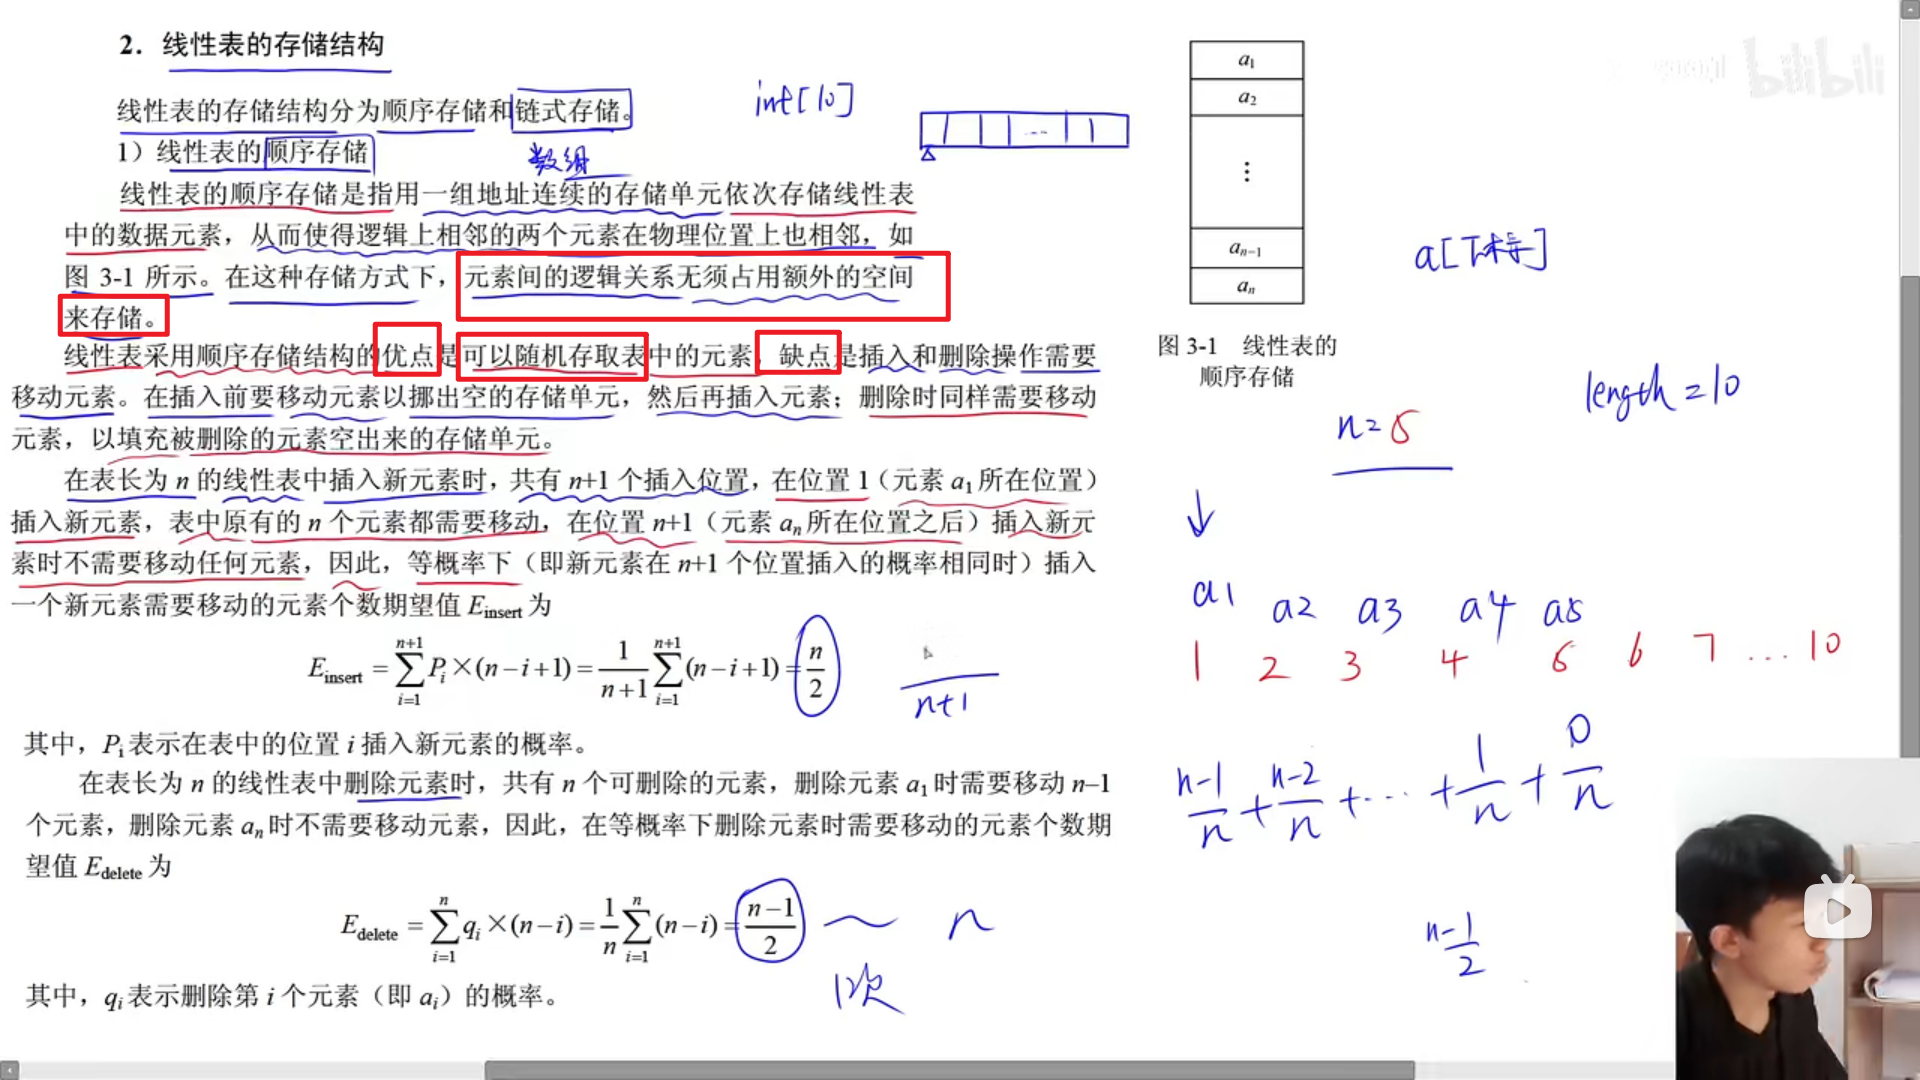 2. 线性表的存储结构
线性表的存储结构分为顺序存储和链式存储。
1）线性表的顺序存储
数组
线性表的顺序存储是指用一组地址连续的存储单元依次存储线性表
中的数据元素，从而使得逻辑上相邻的两个元素在物理位置上也相邻，如
图 3-1 所示。在这种存储方式下，元素间的逻辑关系无须占用额外的空间
来存储。
线性表采用顺序存储结构的优点是可以随机存取表中的元素，缺点是插入和删除操作需要
移动元素。在插入前要移动元素以挪出空的存储单元，然后再插入元素；删除时同样需要移动
元素，以填充被删除的元素空出来的存储单元。
在表长为 n 的线性表中插入新元素时，共有 n+1 个插入位置，在位置 1（元素 a1 所在位置）
插入新元素，表中原有的 n 个元素都需要移动，在位置 n+1（元素 an 所在位置之后）插入新元
素时不需要移动任何元素，因此，等概率下（即新元素在 n+1 个位置插入的概率相同时）插入
一个新元素需要移动的元素个数期望值 Einsert 为
Einsert = ∑_{i=1}^{n+1} Pi×(n−i+1) = 1/(n+1) ∑_{i=1}^{n+1} (n−i+1) = n/2
其中，Pi 表示在表中的位置 i 插入新元素的概率。
在表长为 n 的线性表中删除元素时，共有 n 个可删除的元素，删除元素 a1 时需要移动 n–1
个元素，删除元素 an 时不需要移动元素，因此，在等概率下删除元素时需要移动的元素个数期
望值 Edelete 为
Edelete = ∑_{i=1}^{n} qi×(n−i) = 1/n ∑_{i=1}^{n} (n−i) = (n−1)/2
n
1次
其中，qi 表示删除第 i 个元素（即 ai）的概率。
int[10]
...
n+1
a1
a2
⋮
an−1
an
图 3-1 线性表的
顺序存储
bilibili
a[下标]
length=10
n=5
a1 a2 a3 a4 a5
1 2 3 4 5 6 7 ... 10
n-1/n + n-2/n + ... + 1/n + 0/n
n-1/2